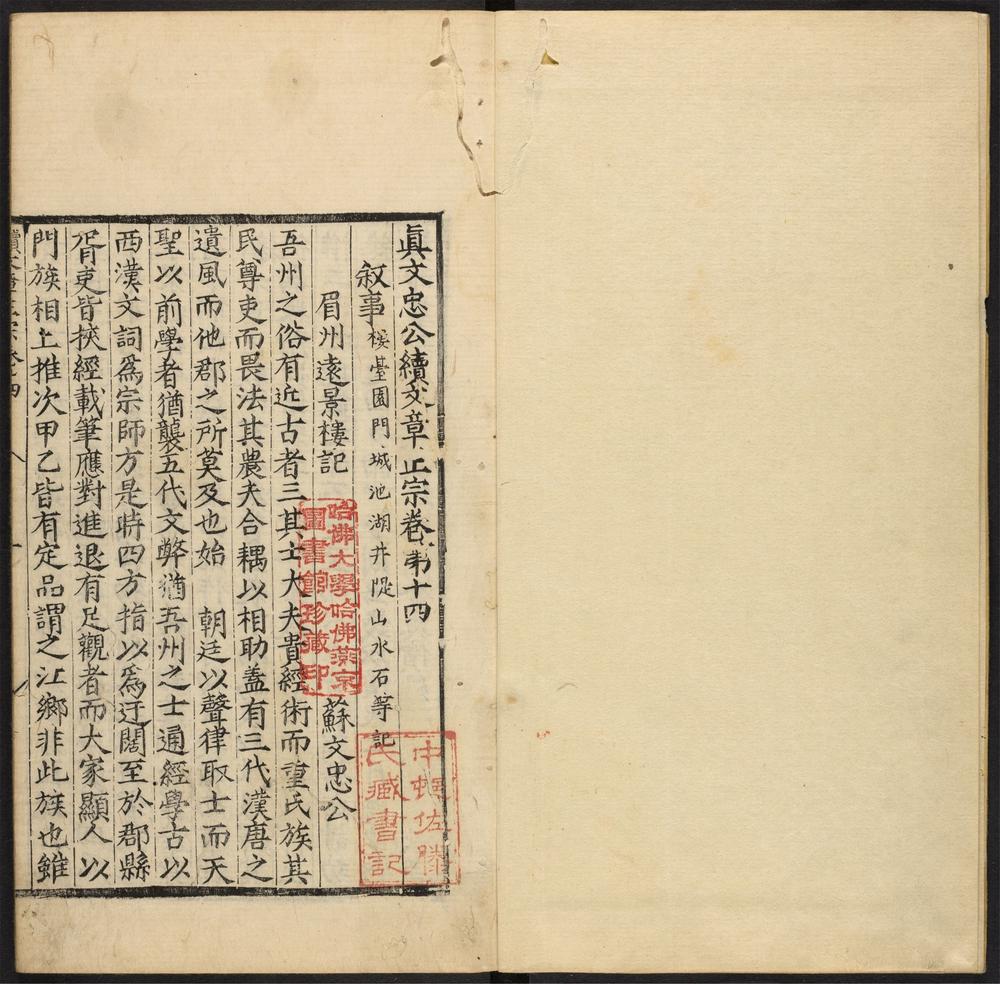 眞文忠公續文章正宗卷第十四
敘事 樓臺園門城池湖井隄山水石等記
眉州遠景樓記 蘇文忠公
吾州之俗有近古者三其士大夫貴經術而重氏族其
民尊吏而畏法其農夫合耦以相助蓋有三代漢唐之
遺風而他郡之所莫及也始 朝廷以聲律取士而天
聖以前學者猶襲五代文弊獨吾州之士通經學古以
西漢文詞爲宗師方是時四方指以爲迂闊至於郡縣
胥吏皆挾經載筆應對進退有足觀者而大家顯人以
門族相上推次甲乙皆有定品謂之江鄉非此族也雖
續文章正宗卷十四
哈佛大學哈佛燕京
圖書館珍藏印
佐
氏藏書記